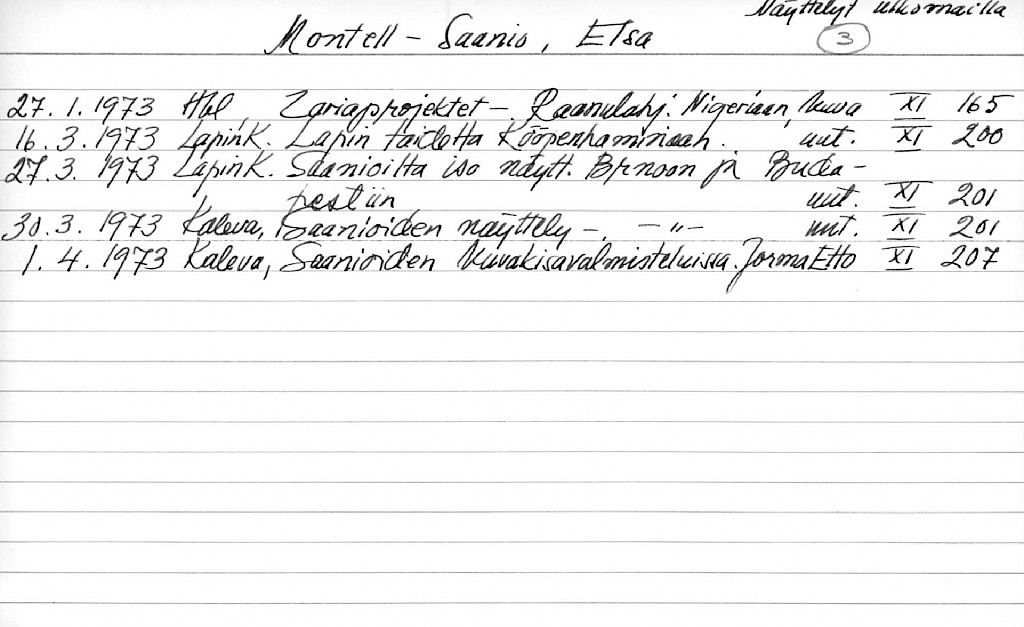 Näyttelyt ulkomailla
Montell - Saanio, Elsa 3
27. 1. 1973 Hbl, Zariaprojektet - Raanulahj. Nigeriaan, kuva XI 165
16. 3. 1973 LapinK. Lapin taidetta Kööpenhaminaan. uut. XI 200
27. 3. 1973 LapinK. Saanioilta iso näytt. Brnoon ja Buda-
pestiin uut. XI 201
30. 3. 1973 Kaleva, Saanioiden näyttely -. -"- uut. XI 201
1. 4. 1973 Kaleva, Saanioiden kuvakisavalmisteluissa. Jorma Etto XI 207